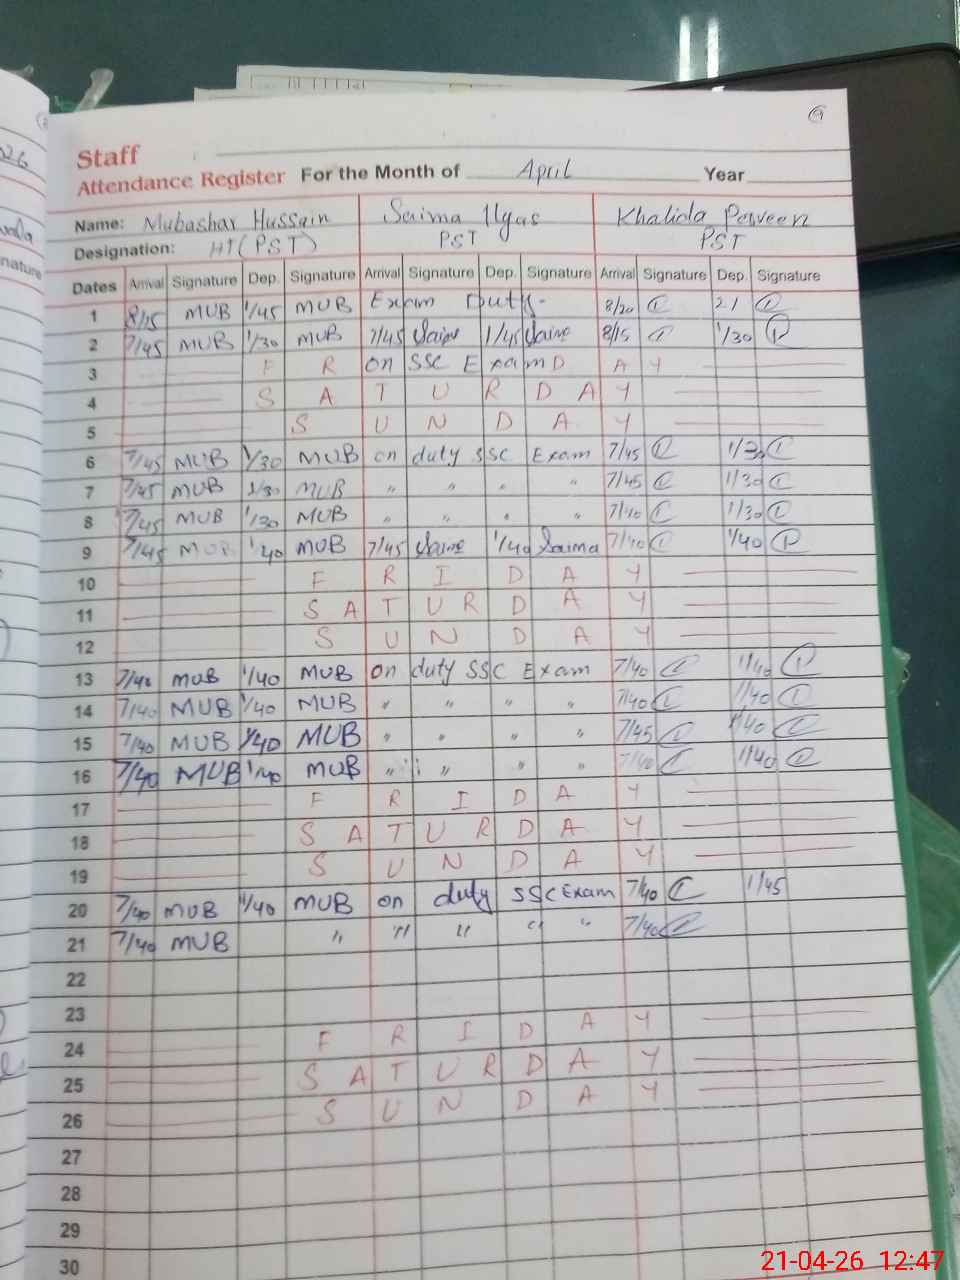 Staff
Attendance Register For the Month of April Year
Name: Mubashar Hussain Saima Ilyas Khalida Perveen
Designation: HT (PST) PST PST
Dates Arrival Signature Dep. Signature Arrival Signature Dep. Signature Arrival Signature Dep. Signature
1 8/15 MUB 1/45 MUB Exam Duty- 8/20 2/1
2 7/45 MUB 1/30 MUB 7/45 Saima 1/45 Saima 8/15 1/30
3 F R on SSC Exam D A Y
4 S A T U R D A Y
5 S U N D A Y
6 7/45 MUB 1/30 MUB on duty SSC Exam 7/45 1/30
7 7/45 MUB 1/30 MUB " " " " 7/45 1/30
8 7/45 MUB 1/30 MUB " " " " 7/40 1/30
9 7/45 MUB 1/40 MUB 7/45 Saima 1/40 Saima 7/40 1/40
10 F R I D A Y
11 S A T U R D A Y
12 S U N D A Y
13 7/40 MUB 1/40 MUB on duty SSC Exam 7/40 1/40
14 7/40 MUB 1/40 MUB " " " " 7/40 1/40
15 7/40 MUB 1/40 MUB " " " " 7/45 1/40
16 7/40 MUB 1/40 MUB " " " " 7/40 1/40
17 F R I D A Y
18 S A T U R D A Y
19 S U N D A Y
20 7/40 MUB 1/40 MUB on duty SSC Exam 7/40 1/45
21 7/40 MUB " " " " " 7/40
22
23
24 F R I D A Y
25 S A T U R D A Y
26 S U N D A Y
27
28
29
30
21-04-26 12:47